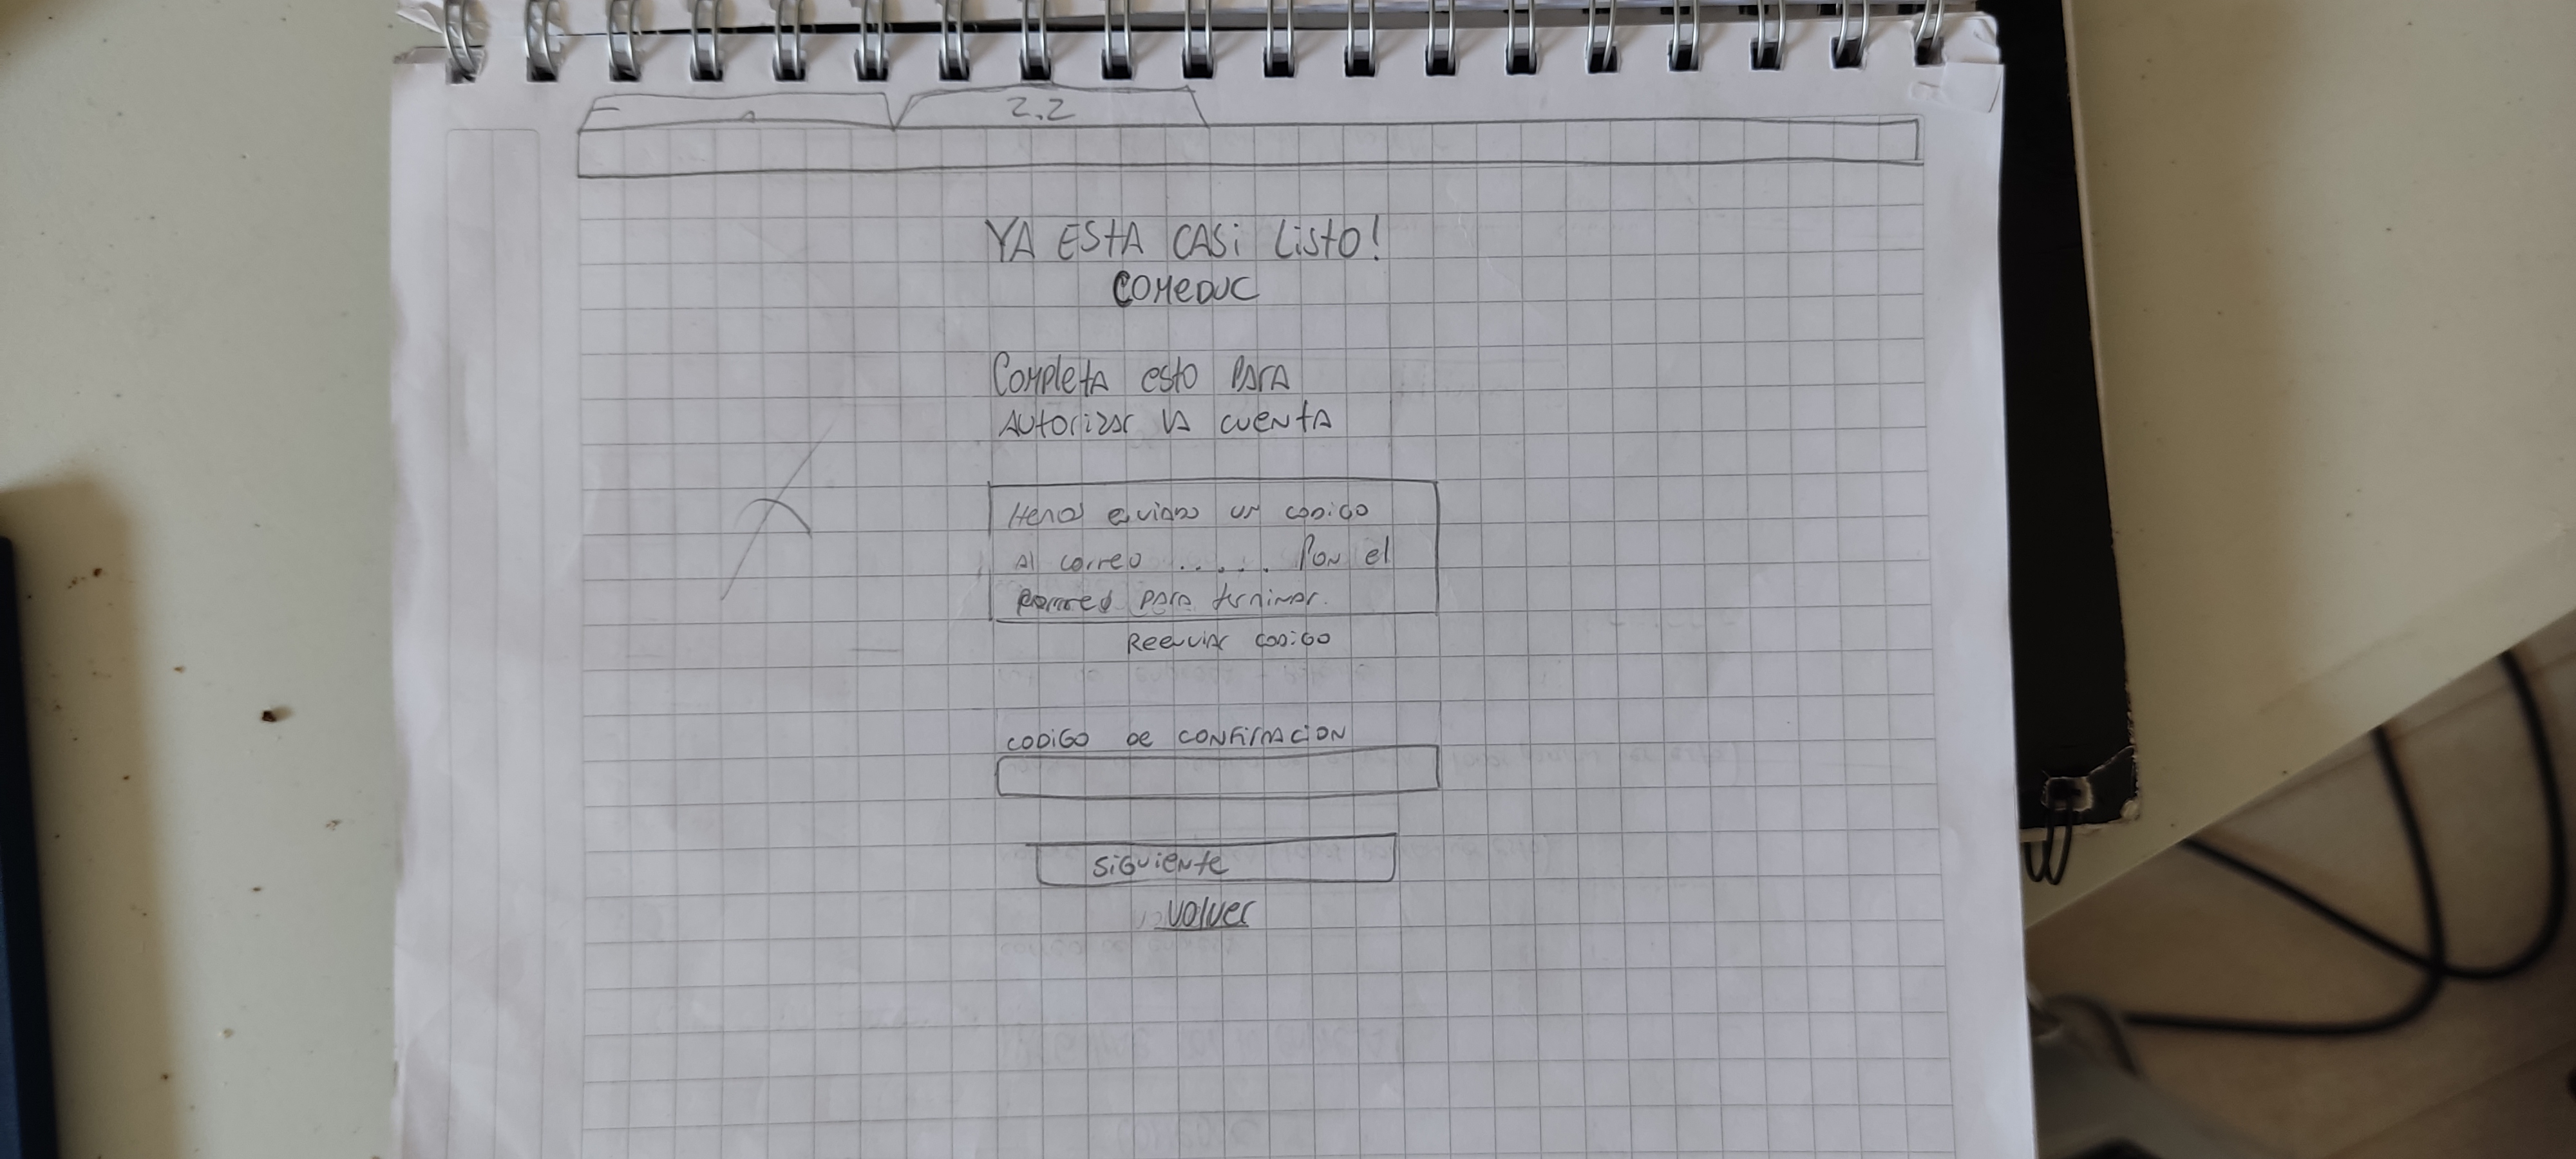 2.2
YA ESTA CASi LiStO!
COMeDUC
COMpletA esto PArA
AUtorizar lA cuentA
Hemos enviado un codigo
Al correo ..... Pon el
para terminar.
Reenviar codigo
CODiGO De CONfirmACiON
SiGuieNte
volver